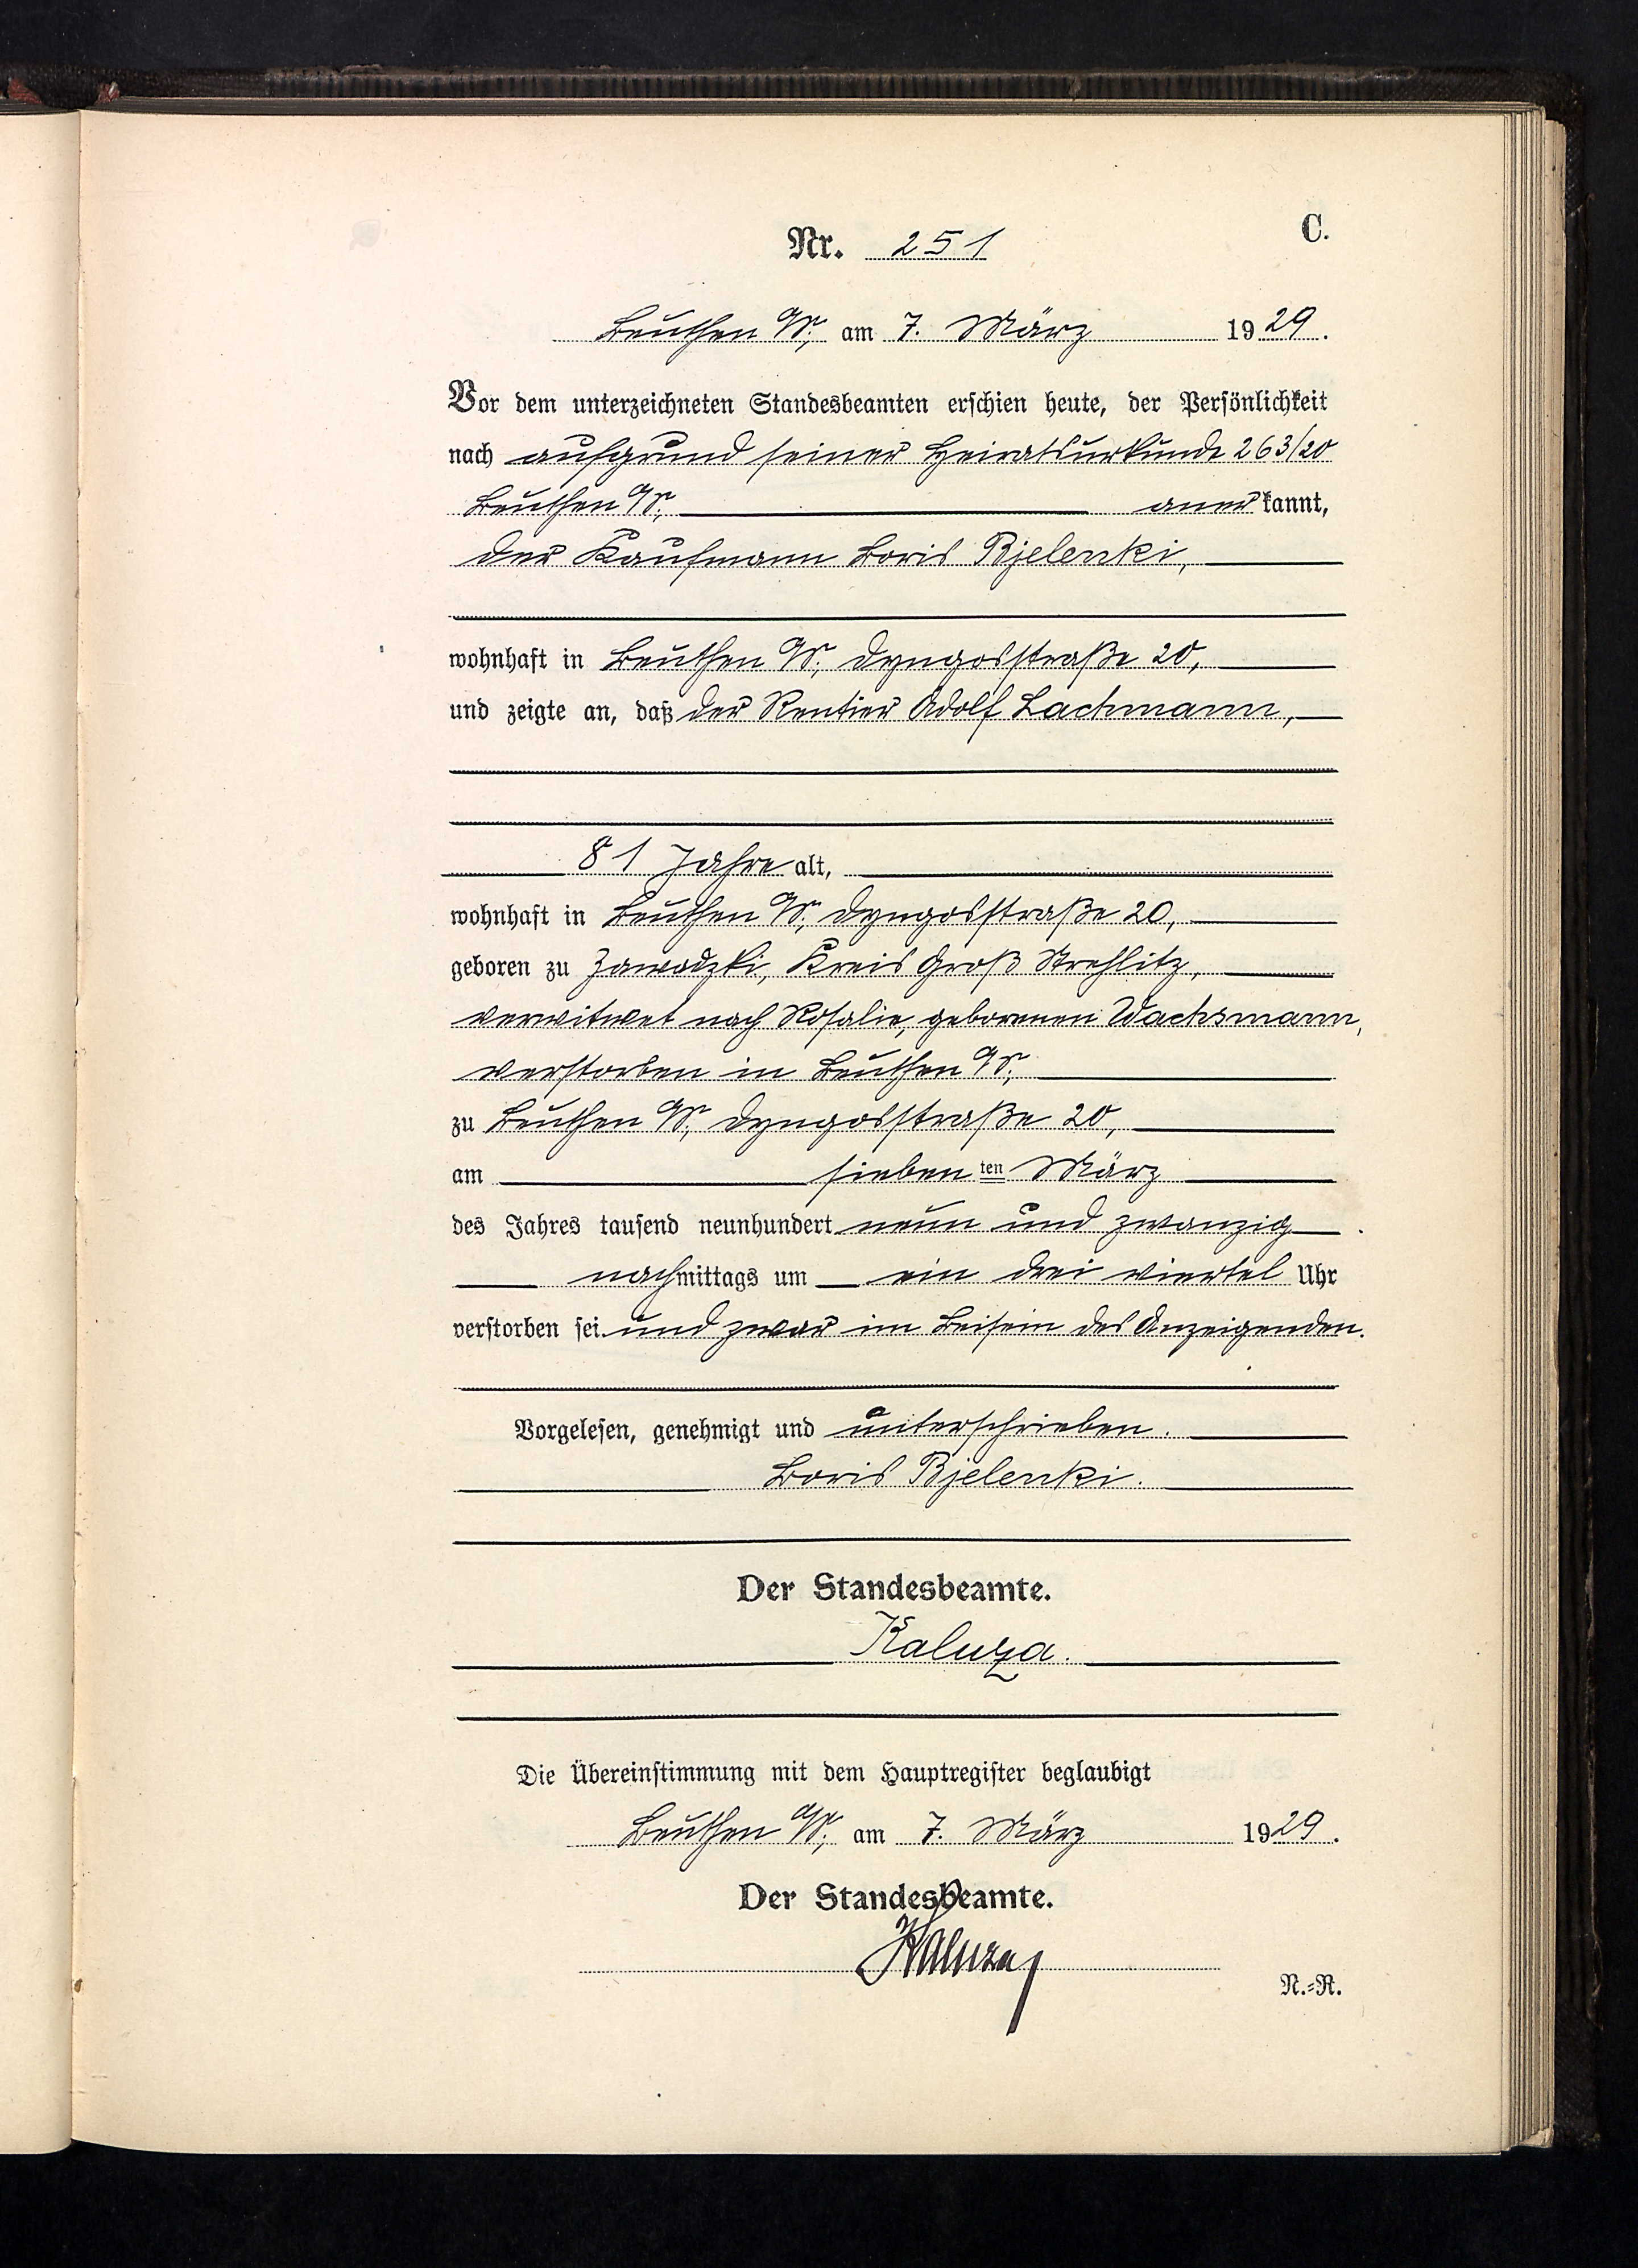 C.
Nr. 251
Beuthen O/S., am 7. März 1929.
Vor dem unterzeichneten Standesbeamten erschien heute, der Persönlichkeit
nach aufgrund seiner Heiratsurkunde 263/20
Beuthen O/S. anerkannt,
der Kaufmann Boris Bjelenki,
wohnhaft in Beuthen O/S. Dyngosstraße 20,
und zeigte an, daß der Rentier Adolf Lachmann,
81 Jahre alt,
wohnhaft in Beuthen O/S., Dyngosstraße 20,
geboren zu Zawadzki, Kreis Groß Strehlitz,
verwitwet nach Rosalie, geborenen Wachsmann,
verstorben in Beuthen O/S.
zu Beuthen O/S., Dyngosstraße 20,
am siebenten März
des Jahres tausend neunhundert neun und zwanzig
nachmittags um ein drei viertel Uhr
verstorben sei und zwar im Beisein des Anzeigenden.
Vorgelesen, genehmigt und unterschrieben.
Boris Bjelenki.
Der Standesbeamte.
Kaluza.
Die Übereinstimmung mit dem Hauptregister beglaubigt
Beuthen O/S., am 7. März 1929.
Der Standesbeamte.
Kaluza
N.=R.